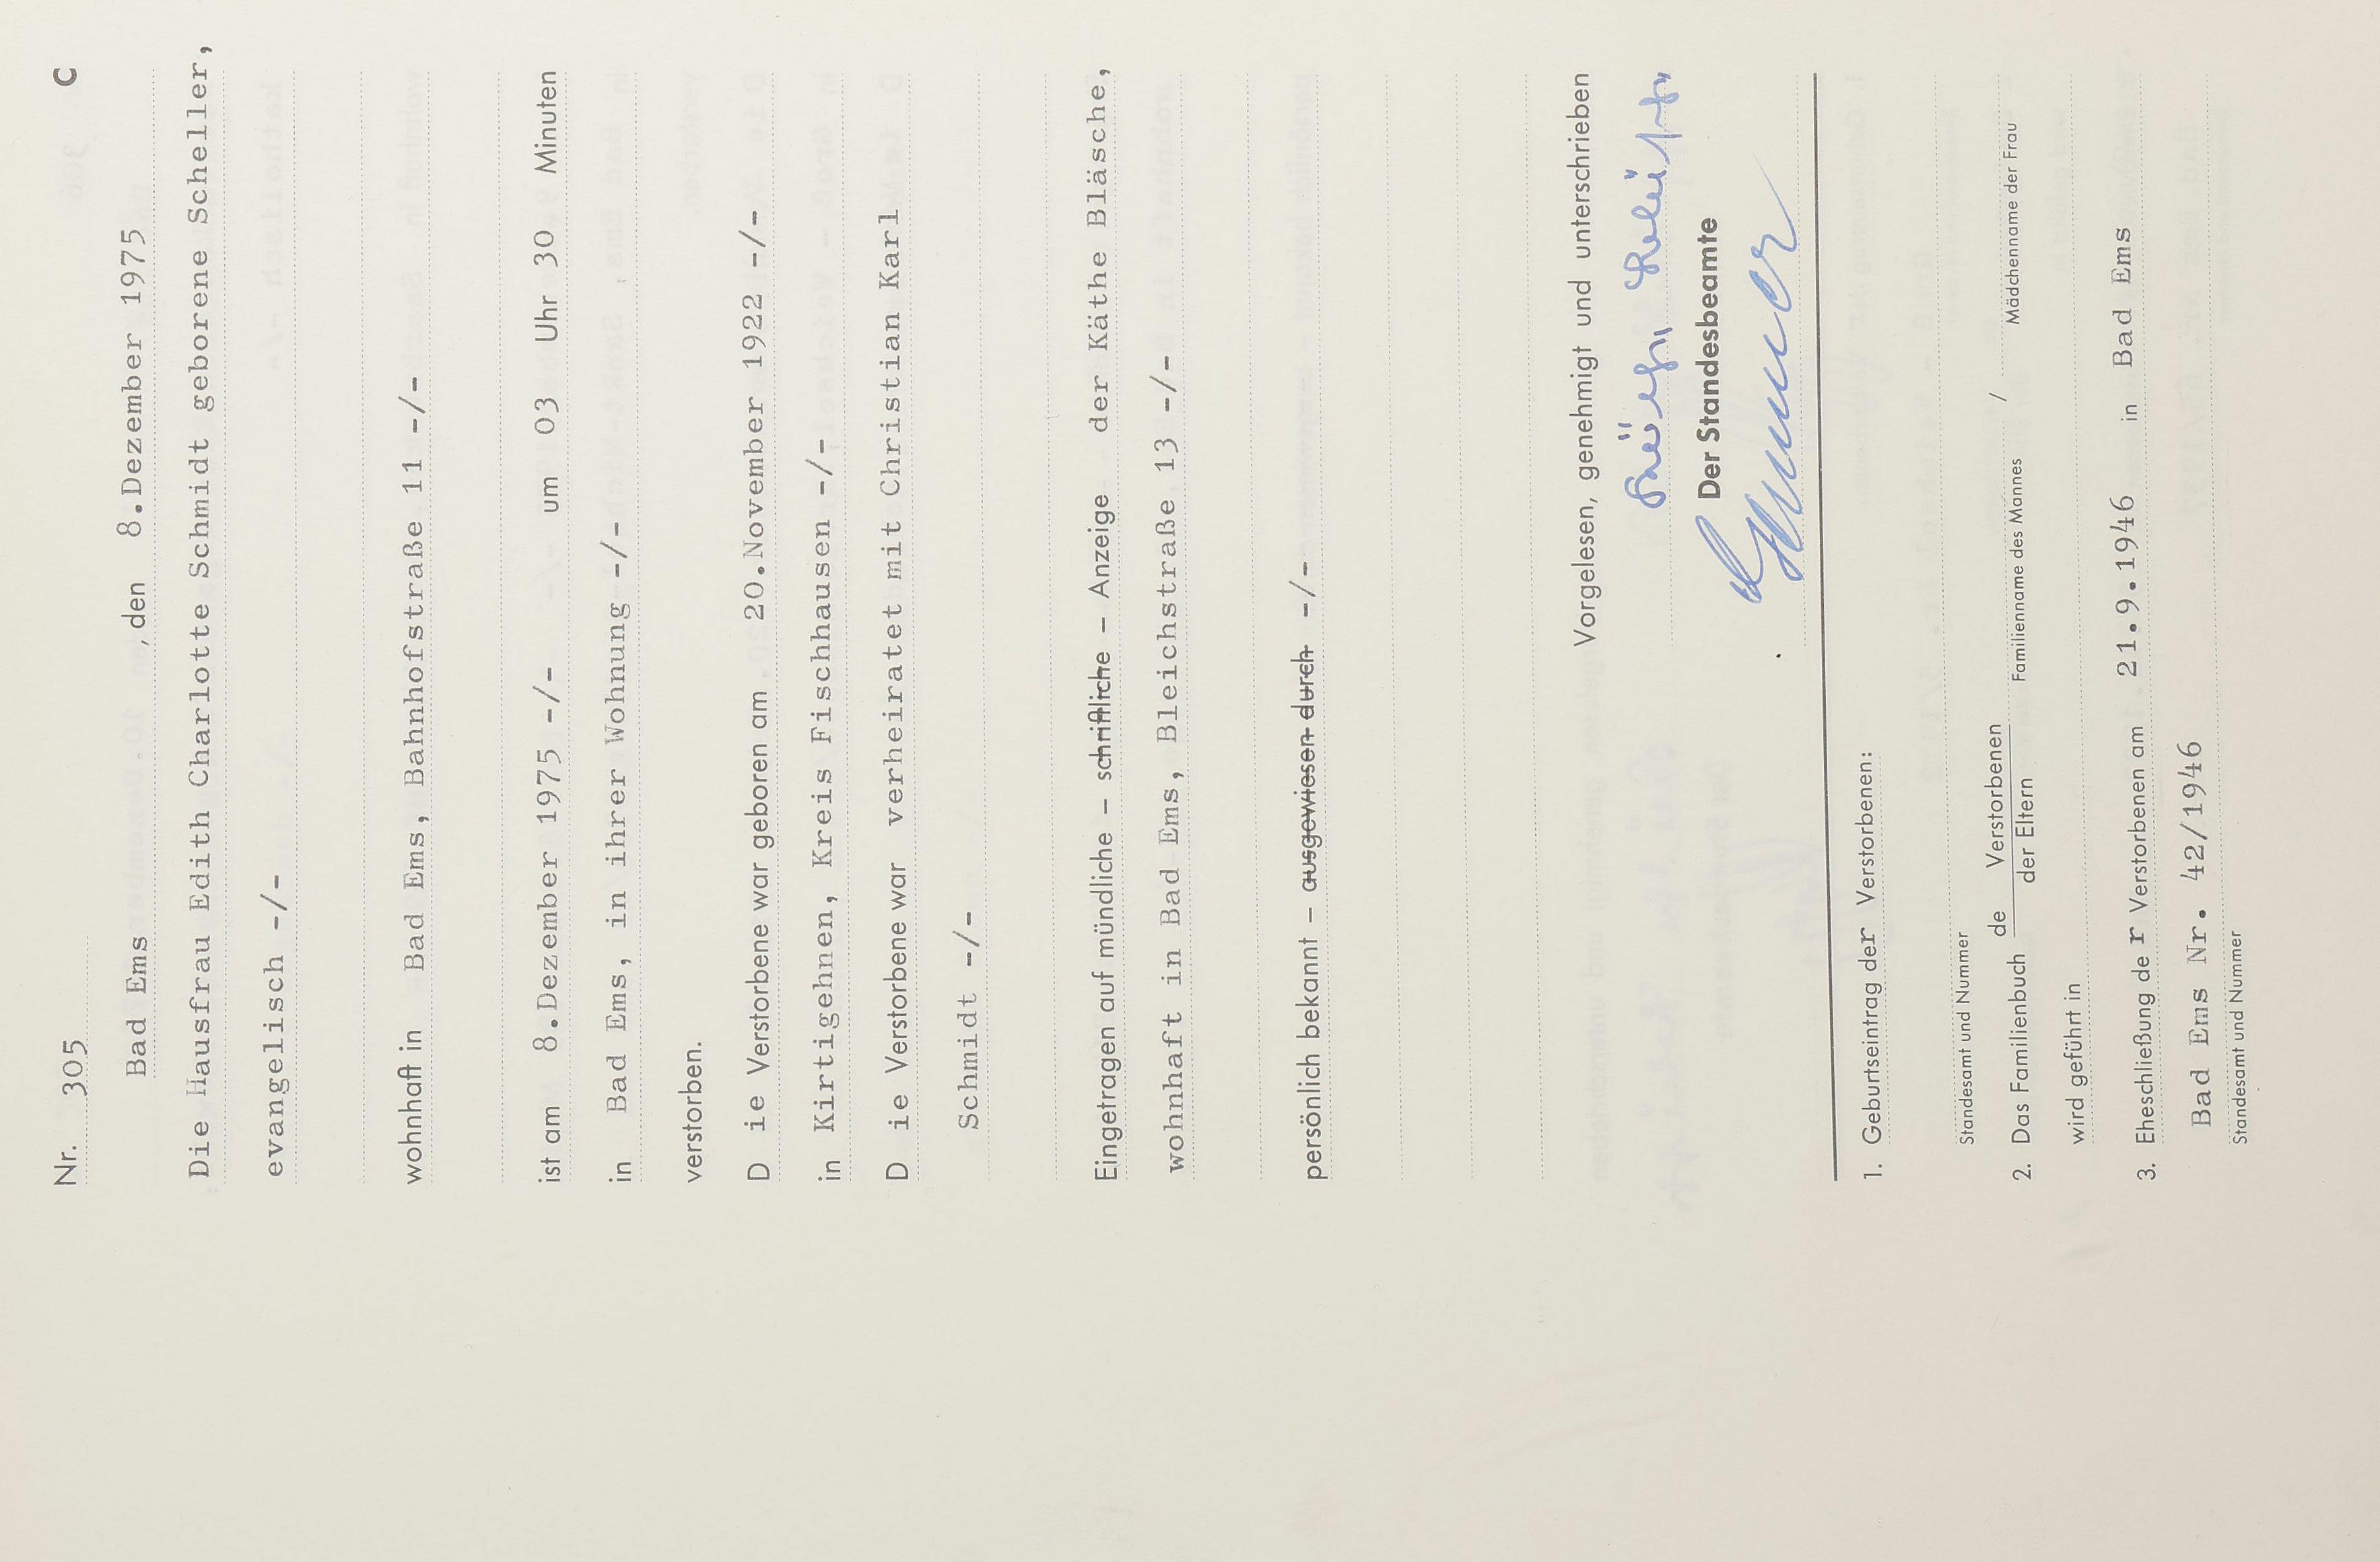 Nr. 305 C
Bad Ems, den 8.Dezember 1975
Die Hausfrau Edith Charlotte Schmidt geborene Scheller,
evangelisch -/-
wohnhaft in Bad Ems, Bahnhofstraße 11 -/-
ist am 8.Dezember 1975 -/- um 03 Uhr 30 Minuten
in Bad Ems, in ihrer Wohnung -/-
verstorben.
D ie Verstorbene war geboren am 20.November 1922 -/-
in Kirtigehnen, Kreis Fischhausen -/-
D ie Verstorbene war verheiratet mit Christian Karl
Schmidt -/-
Eingetragen auf mündliche – schriftliche – Anzeige der Käthe Bläsche,
wohnhaft in Bad Ems, Bleichstraße 13 -/-
persönlich bekannt – ausgewiesen durch -/-
Vorgelesen, genehmigt und unterschrieben
Der Standesbeamte
1. Geburtseintrag der Verstorbenen:
Standesamt und Nummer
2. Das Familienbuch de Verstorbenen / der Eltern
Familienname des Mannes / Mädchenname der Frau
wird geführt in
3. Eheschließung de r Verstorbenen am 21.9.1946 in Bad Ems
Bad Ems Nr. 42/1946
Standesamt und Nummer